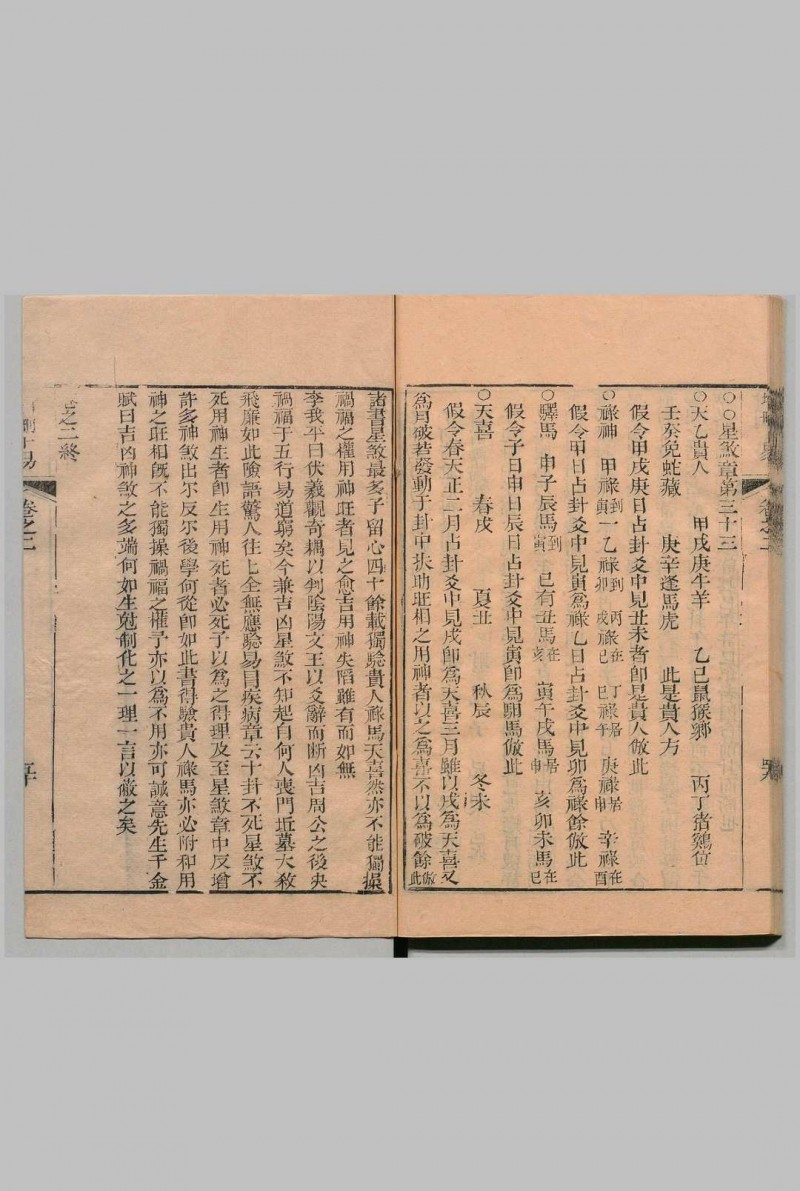 ○○星煞章第三十三
○天乙貴人 甲戊庚牛羊 乙己鼠猴鄉 丙丁猪鷄位
壬癸兔蛇藏 庚辛逢馬虎 此是貴人方
假令甲戊庚日占卦爻中見丑未者卽是貴人倣此
○祿神 甲祿到寅 乙祿到卯 丙戊祿在巳 丁己祿居午 庚祿居申 辛祿在酉
假令甲日占卦爻中見寅爲祿乙日占卦爻中見卯爲祿餘倣此
○驛馬 申子辰馬到寅 巳酉丑馬在亥 寅午戌馬居申 亥卯未馬在巳
假令子日申日辰日占卦爻中見寅卽爲驛馬倣此
○天喜 春戌 夏丑 秋辰 冬未
假令春天正二月占卦爻中見戌卽爲天喜三月雖以戌爲天喜又
爲月破若發動于卦中扶助旺相之用神者以之爲喜不以爲破餘倣此
諸書星煞最多予留心四十餘載獨驗貴人祿馬天喜然亦不能獨操
禍福之權用神旺者見之愈吉用神失陷雖有而如無
李我平曰伏羲觀奇耦以判陰陽文王以爻辭而斷凶吉周公之後央
禍福于五行易道窮矣今兼吉凶星煞不知起自何人喪門坵墓大殺
飛廉如此險語驚人往往全無應驗易冐疾病章云卜卦不死星煞不
死用神生者卽生用神死者必死予以爲之得理及至星煞章中反增
許多神煞出尔反尔後學何從卽如此書得驗貴人祿馬亦必附和用
神之旺相旣不能獨操禍福之權予亦以爲不用亦可誠意先生千金
賦曰吉凶神煞之多端何如生尅制化之一理一言以蔽之矣
卷之二終
卷之二